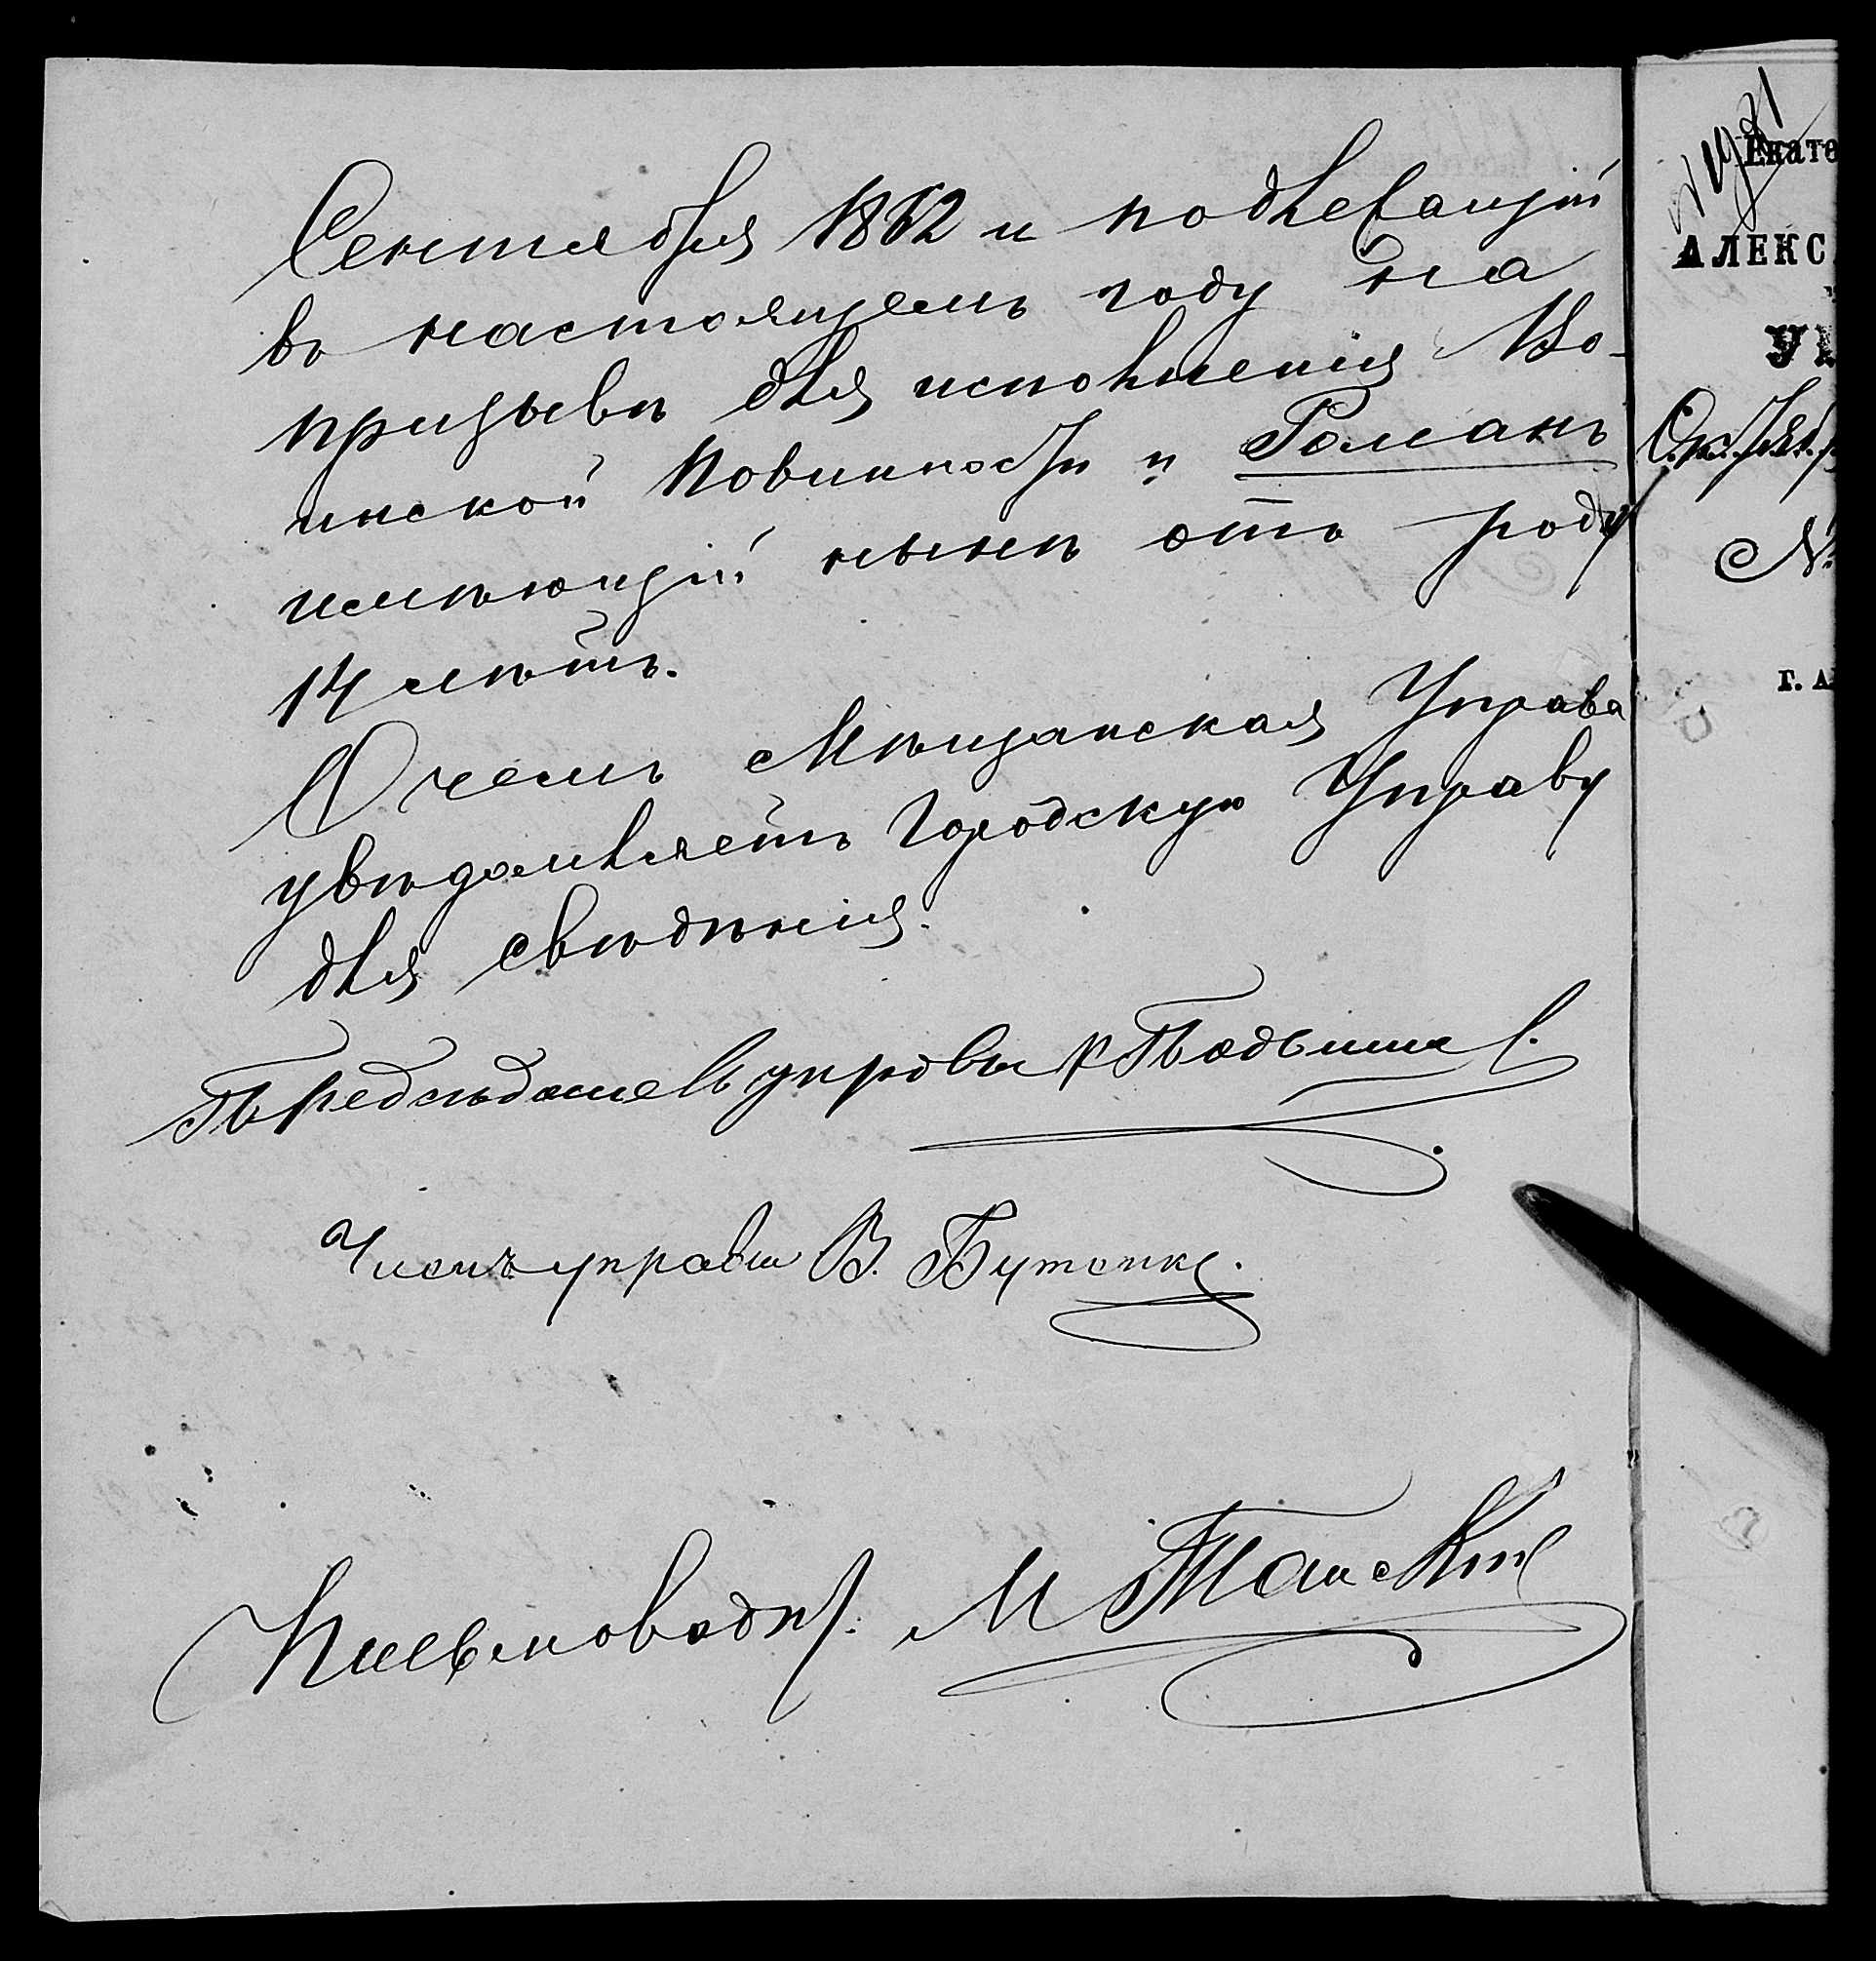 Сентября 1862 и подлежащій
въ настоящемъ году на
призывѣ для исполненія Во-
инской Повинности и Романъ
имѣющій нынѣ отъ роду
14 лѣтъ.
О чемъ Мѣщанская Управа
увѣдомляетъ Городскую Управу
для свѣдѣнія.
Предсѣдатель управы
Членъ управы В. Бутенко.
Письмовод М
Екате
АЛЕКС
УП
Октяб
№
г. А